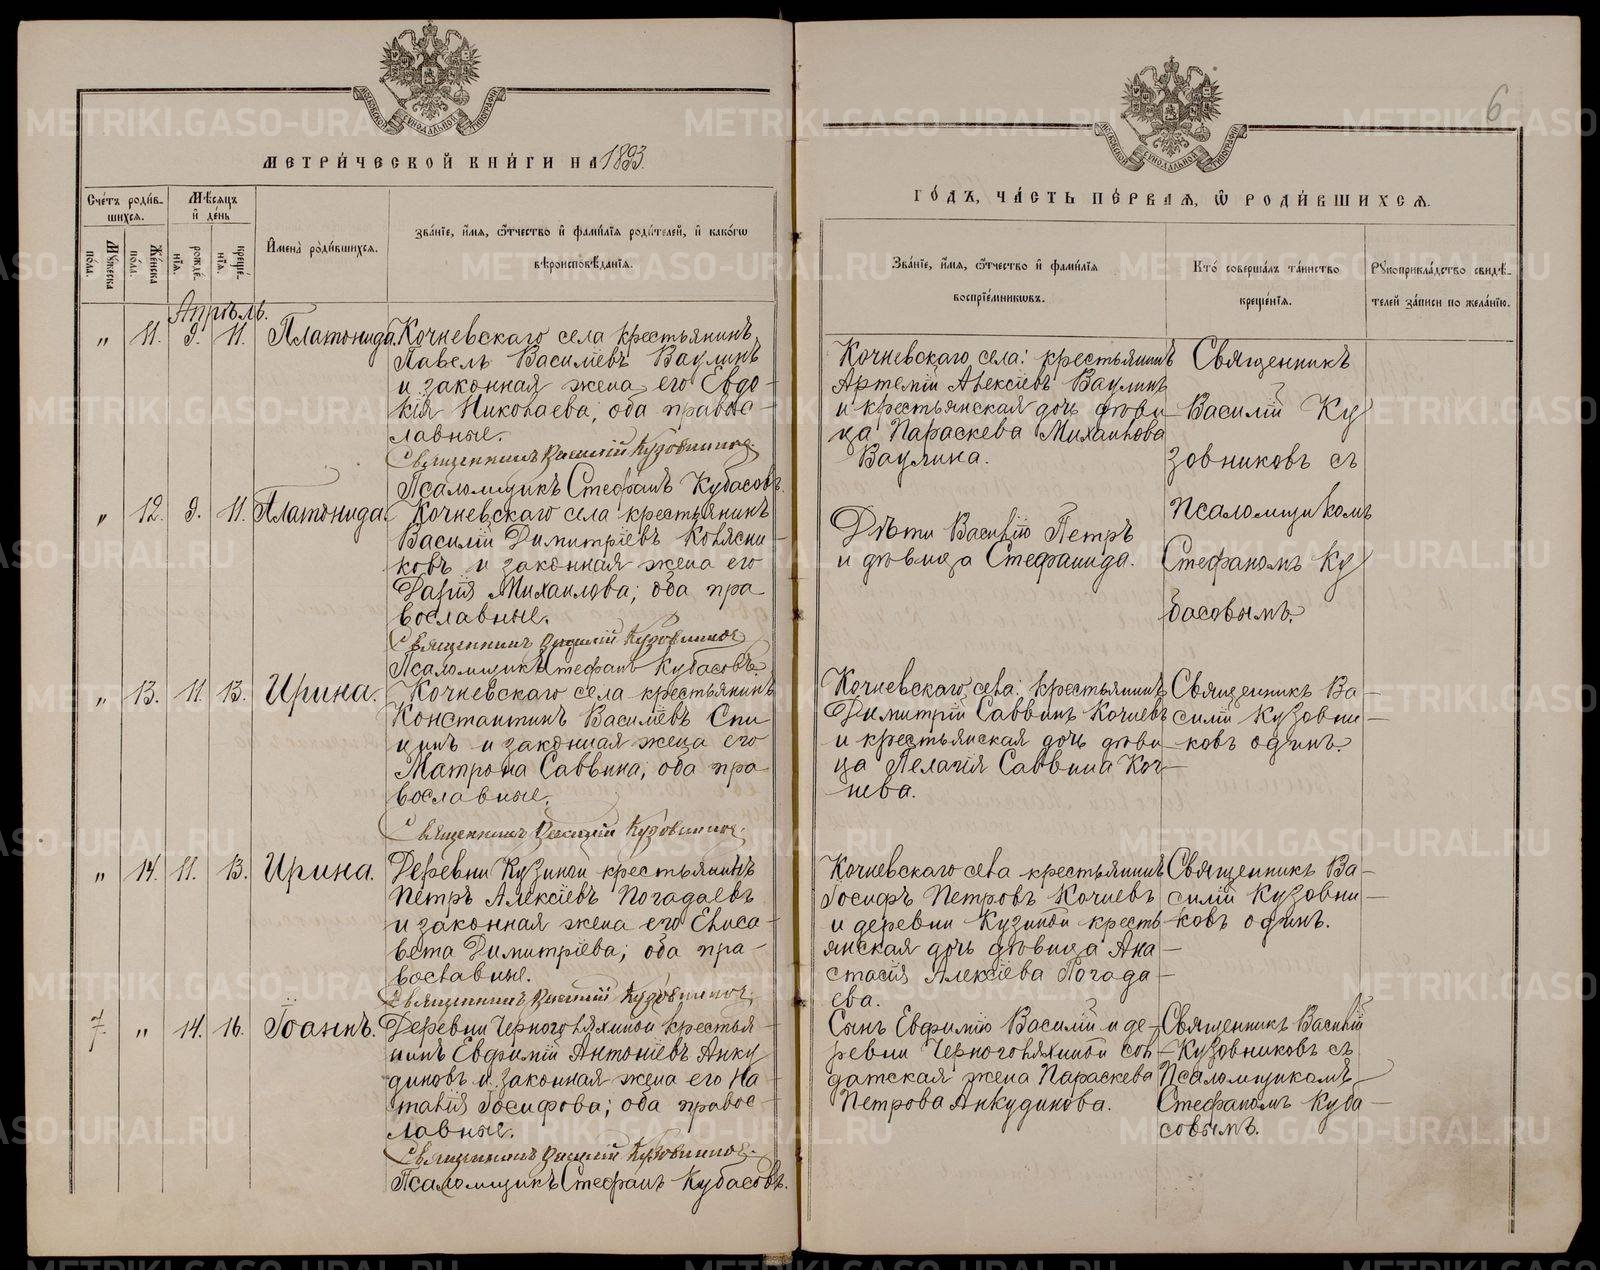 МОСКОВСКОЙ СѴНОДАЛЬНОЙ ТИПОГРАФІИ
МЕТРИ́ЧЕСКОЙ КНИ́ГИ НА 1893.
Сче́тъ роди́в-
шихся.
Мѣ́сяцъ
и҆ де́нь
Му́жеска
по́ла.
Же́нска
по́ла.
рожде́-
нїѧ.
креще́-
нїѧ.
И҆мена̀ роди́вшихся.
Зва́нїе, и҆́мѧ, ѻ҆́тчество и҆ фами́лїѧ роди́телей, и҆ како́гѡ
вѣроисповѣ́данїѧ.
Апрѣль.
„ 11. 9. 11. Платонида. Кочневскаго села крестьянинъ
Павелъ Василіевъ Ваулинъ
и законная жена его Евдо-
кія Николаева; оба правос-
лавные.
Священникъ Василій Кузовников.
Псаломщикъ Стефанъ Кубасовъ.
„ 12. 9. 11. Платонида. Кочневскаго села крестьянинъ
Василій Димитріевъ Колясни-
ковъ и законная жена его
Дарія Михаилова; оба пра
вославные.
Священникъ Василій Кузовников
Псаломщикъ Стефанъ Кубасовъ.
„ 13. 11. 13. Ирина. Кочневскаго села крестьянинъ
Константинъ Василіевъ Спи
цинъ и законная жена его
Матрона Саввина; оба пра
вославные.
Священникъ Василій Кузовников.
„ 14. 11. 13. Ирина. Деревни Кузиной крестьянинъ
Петръ Алексіевъ Погадаевъ
и законная жена его Елиса-
вета Димитріева; оба пра-
вославные.
Священникъ Василій Кузовников.
7. „ 14. 16. Іоаннъ. Деревни Черноголяхиной крестья-
нинъ Евфимій Антоніевъ Анку
диновъ и законная жена его На
талія Іосифова; оба правос-
лавные.
Священникъ Василій Кузовников.
Псаломщикъ Стефанъ Кубасовъ.
6
МОСКОВСКОЙ СѴНОДАЛЬНОЙ ТИПОГРАФІИ
ГО́ДЪ, ЧА́СТЬ ПЕ́РВАѦ, Ѡ҆ РОДИ́ВШИХСѦ.
Зва́нїе, и҆́мѧ, ѻ҆́тчество и҆ фами́лїѧ
воспрїе́мникѡвъ.
Кто̀ соверша́лъ та́инство
креще́нїѧ.
Рꙋкоприкла́дство свидѣ́-
телей за́писи по жела́нїю.
Кочневскаго села: крестьянинъ
Артемій Алексіевъ Ваулинъ
и крестьянская дочь дѣви-
ца Параскева Михаилова
Ваулина.
Священникъ
Василій Ку
зовниковъ съ
псаломщикомъ
Стефаномъ Ку
басовымъ.
Дѣти Василію Петръ
и дѣвица Стефанида.
Кочневскаго села: крестьянинъ
Димитрій Саввинъ Кочневъ
и крестьянская дочь дѣви-
ца Пелагія Саввина Коч-
нева.
Священникъ Ва-
силій Кузовни-
ковъ одинъ.
Кочневскаго села крестьянинъ
Іосифъ Петровъ Кочневъ
и деревни Кузиной кресть-
янская дочь дѣвица Ана-
стасія Алексіева Погада-
ева.
Священникъ Ва-
силій Кузовни-
ковъ одинъ.
Сынъ Евфимію Василій и де-
ревни Черноголяхиной сол-
датская жена Параскева
Петрова Анкудинова.
Священникъ Василій
Кузовниковъ съ
Псаломщикомъ
Стефаномъ Куба-
совымъ.
METRIKI.GASO-URAL.RU